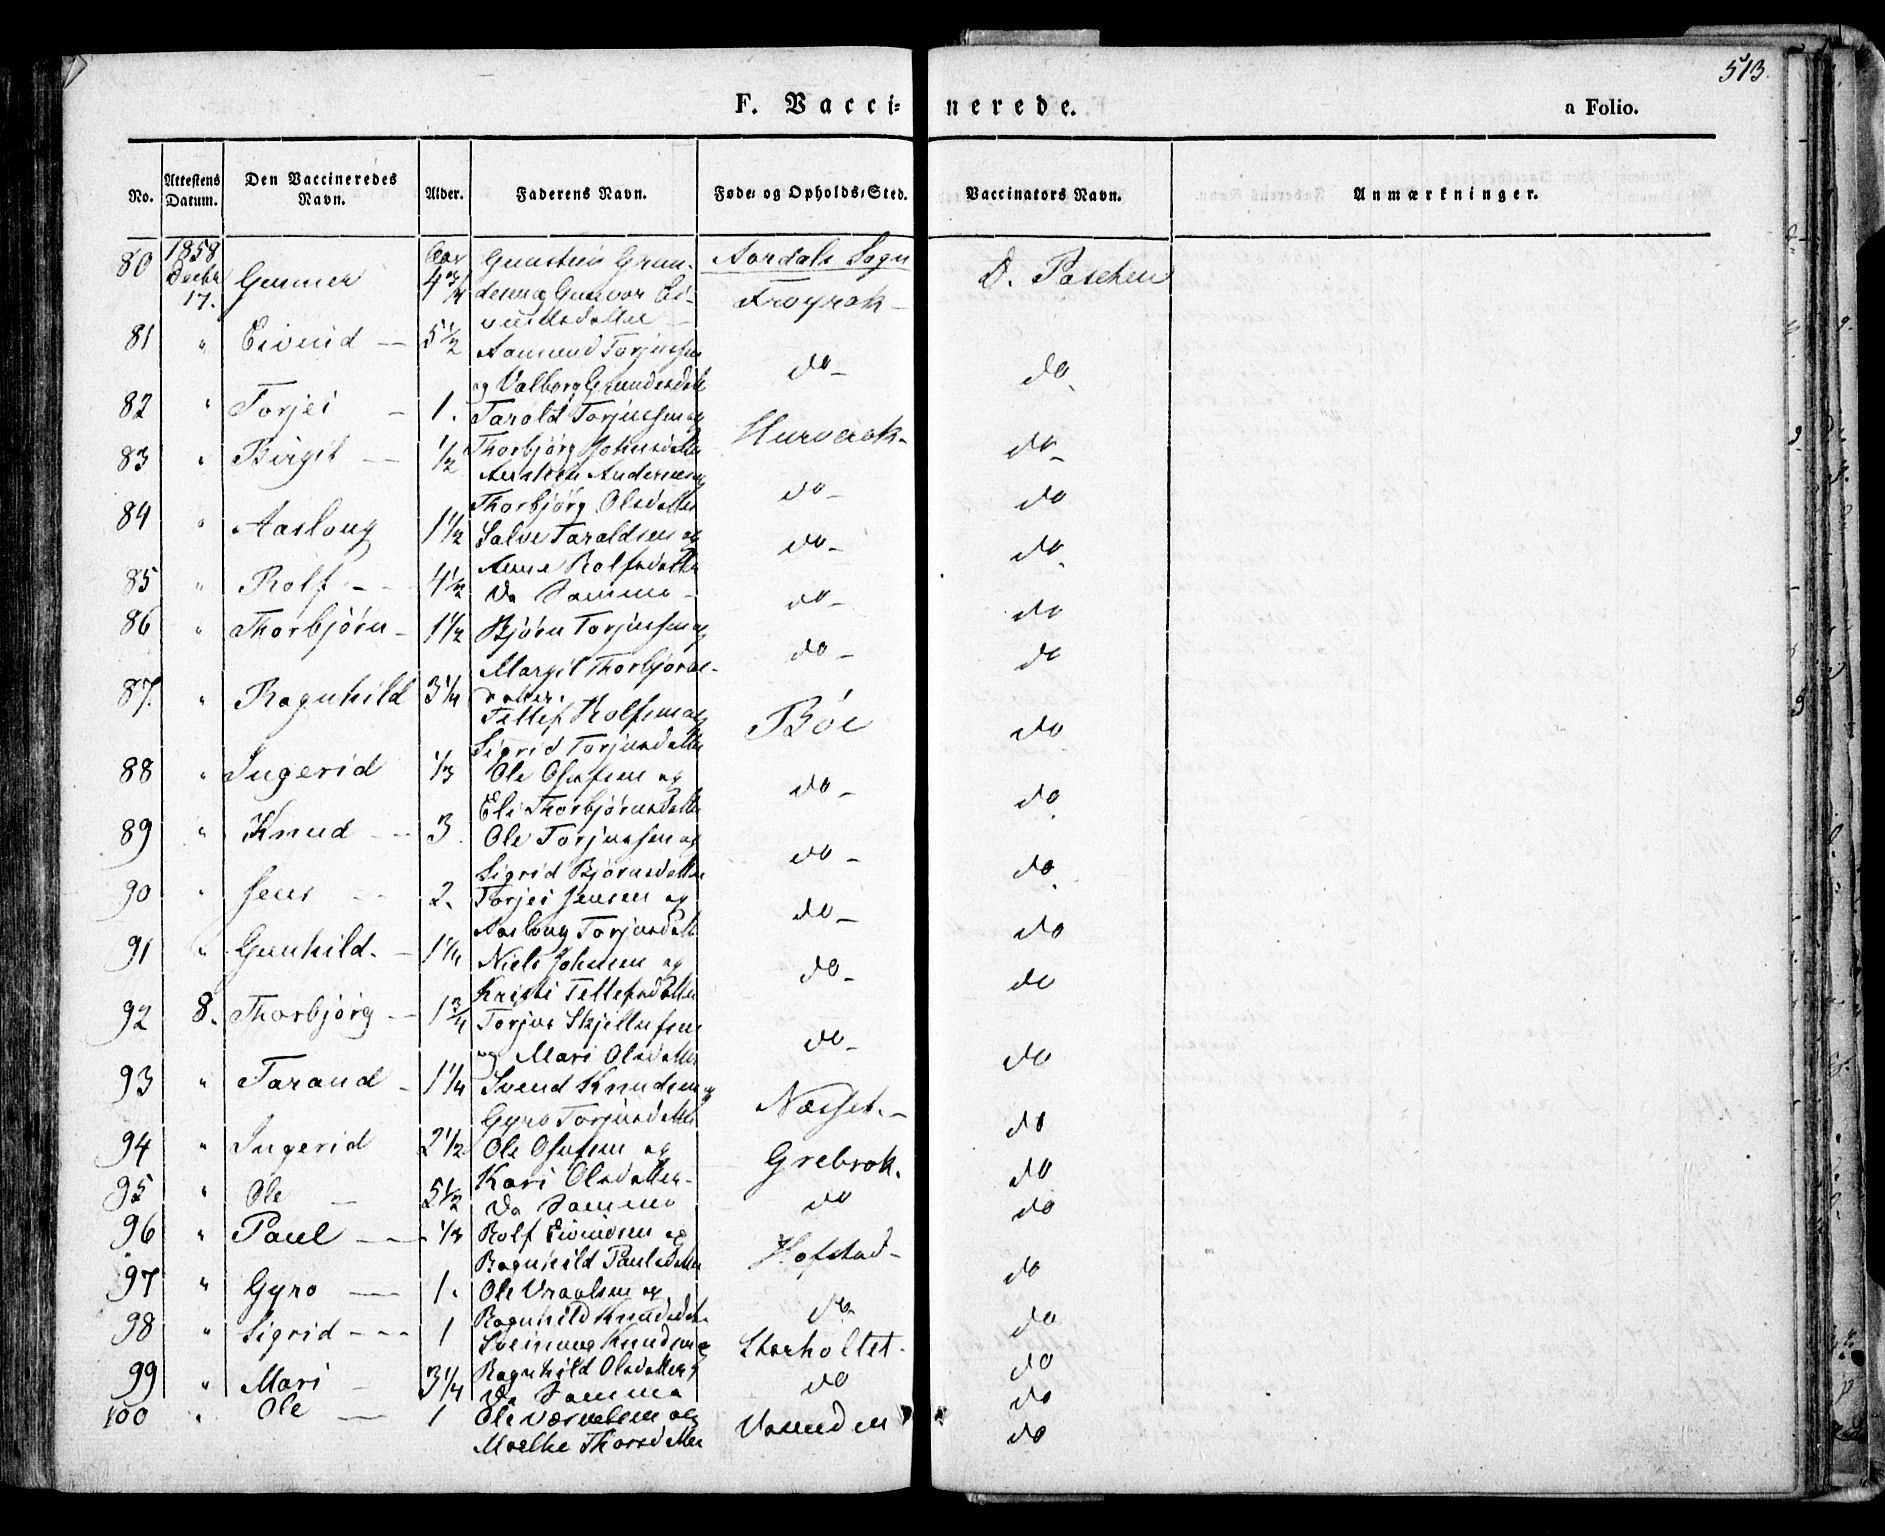 513.
F. Vacci- nerede.
a Folio.
No. Attestens Datum. Den Vaccineredes Navn. Alder. Faderens Navn. Føde- og Opholds-Sted. Vaccinators Navn. Anmærkninger.
80 1858 Decbr 17. Gunner Aar 4 3/4 Gunstein Gun- Aardals Sogn D. Paschen
densen og Gunvor Ei- Frøyrak
vindsdatter
81 " Eivind 5 1/2 Aamund Torjussen do do
og Valborg Gundersdatt
82 " Torjei 1. Tarald Torjussen og Hurverak do
Thorbjörg Johnsdatter
83 " Birgit 1/2 Austein Andersen og do do
Thorbjörg Olsdatter
84 " Aaslaug 1 1/2 Salve Taraldsen og do do
Anne Rolfsdatter
85 " Rolf 4 1/2 Do Samme do do
86 " Thorbjörn 1 1/2 Bjørn Torjussen og do do
Margit Thorbjörns-
datter.
87. " Ragnhild 3 1/4 Tellef Rolfsen og Bøe do
Sigrid Torjusdatter
88 " Ingerid 1/3 Ole Olufsen og do do
Eli Thorbjörnsdatter
89 " Knud 3 Ole Torjussen og do do
Sigrid Bjørnsdatter
90 " Jens 2. Torjei Jensen og do do
Aaslaug Torjusdatt
91 " Gunhild. 1 1/4 Niels Johnsen og do do
Kristi Tellefsdatter
92 8. Thorbjörg 1 3/4 Torjus Skjellufsen do do
og Mari Olsdatter
93 " Tarand 1 1/4 Svend Knudsen og Næsset. do
Gyro Torjusdatter
94 " Ingerid 2 1/2 Ole Olufsen og Grebrok. do
Kari Olsdatter
95 " Ole 5 1/2 Do Samme do do
96 " Paul 1/3 Rolf Eivindsen og Hofstad do
Ragnhild Paulsdatter
97 " Gyro 1. Ole Vraalsen og do do
Ragnhild Knudsdat.
98 " Sigrid 1 Sveinung Knudsen og Storholtet do
Ragnhild Olsdatter
99 " Mari 3 1/4 Do Samme do do
100 " Ole 1 Ole Værnelsen og Vasenden do
Moelke Thorsdatter